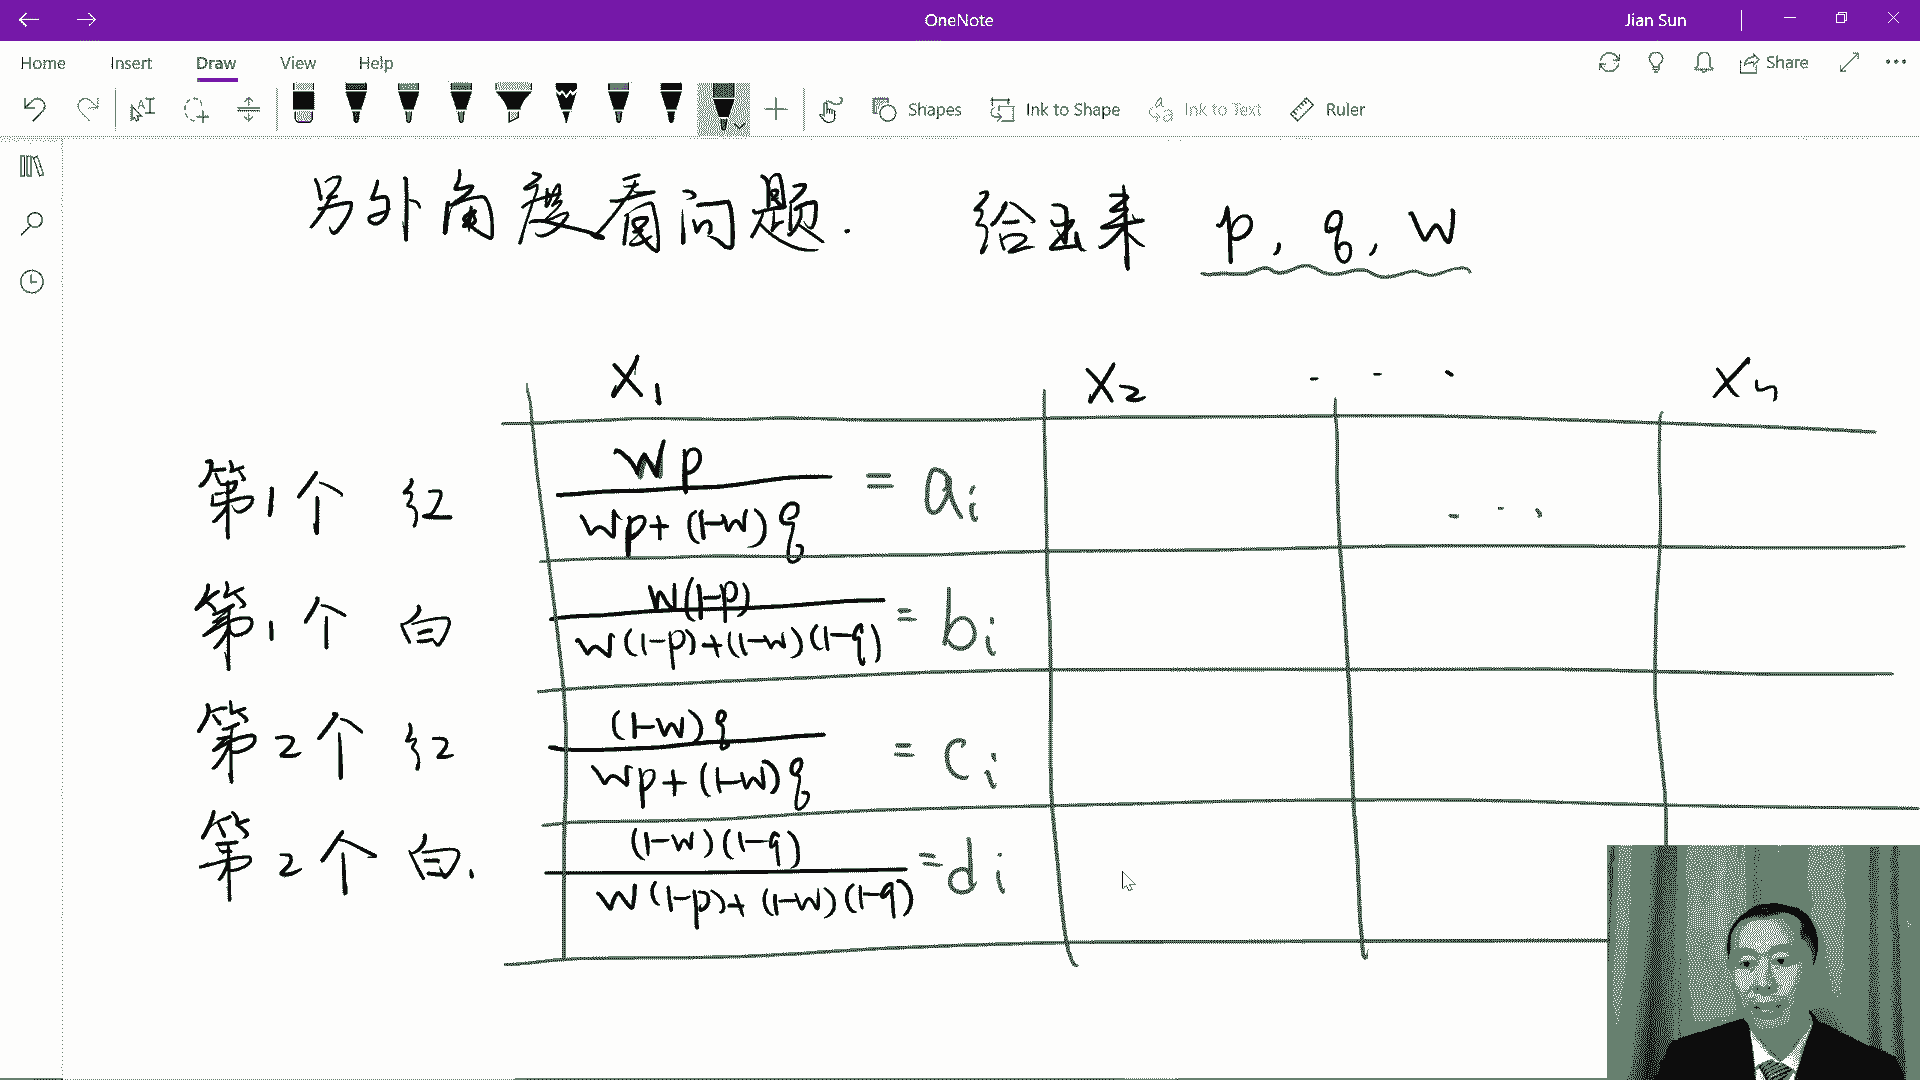 OneNote
Jian Sun
Home Insert Draw View Help
Share
Shapes Ink to Shape Ink to Text Ruler
另外角度看问题. 给出来 p, q, w
x₁ x₂ . . . xₙ
第1个 红 wp/(wp+(1-w)q) = aᵢ ...
第1个 白 w(1-p)/(w(1-p)+(1-w)(1-q)) = bᵢ
第2个 红 (1-w)q/(wp+(1-w)q) = cᵢ
第2个 白. (1-w)(1-q)/(w(1-p)+(1-w)(1-q)) = dᵢ